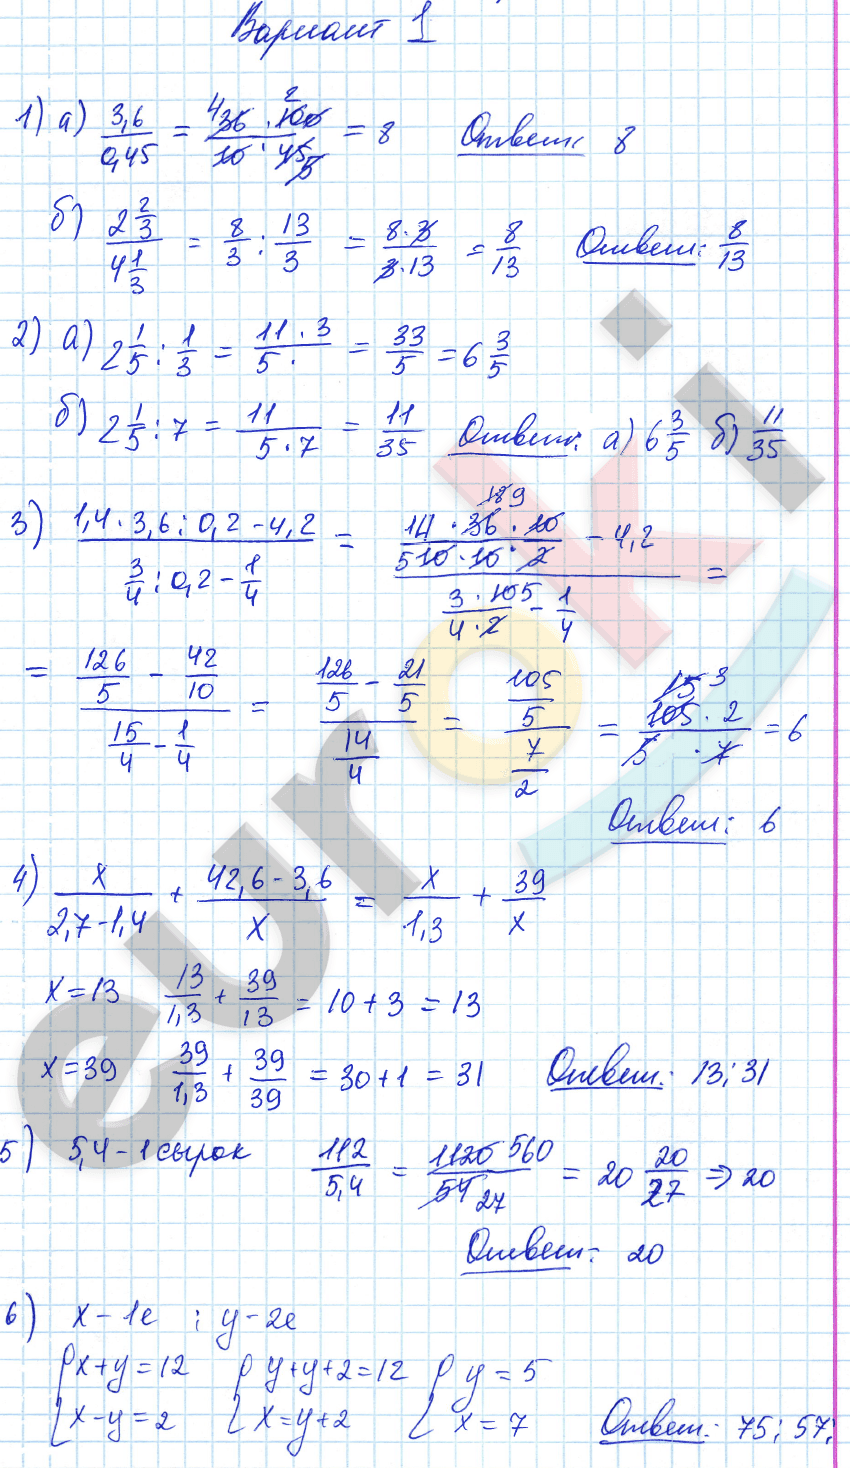 Вариант 1
1) а) 3,6/0,45 = 4 36 · 100 2/10 · 45 5 = 8 Ответ: 8
б) 2 2/3 / 4 1/3 = 8/3 : 13/3 = 8·3/3·13 = 8/13 Ответ: 8/13
2) а) 2 1/5 : 1/3 = 11·3/5· = 33/5 = 6 3/5
б) 2 1/5 : 7 = 11/5·7 = 11/35 Ответ: а) 6 3/5 б) 11/35
3) (1,4·3,6:0,2-4,2)/(3/4:0,2-1/4) = (14·36 18 9·10/5 10·10·2 - 4,2)/(3·10 5/4·2 - 1/4) =
= (126/5 - 42/10)/(15/4 - 1/4) = (126/5 - 21/5)/(14/4) = (105/5)/(7/2) = 15 3 105·2/5·7 = 6
Ответ: 6
4) x/2,7-1,4 + 42,6-3,6/x = x/1,3 + 39/x
x=13 13/1,3 + 39/13 = 10+3 = 13
x=39 39/1,3 + 39/39 = 30+1 = 31 Ответ: 13; 31
5) 5,4 - 1 сырок 112/5,4 = 1120 560/54 27 = 20 20/27 ⇒ 20
Ответ: 20
6) x - 1е ; y - 2е
{x+y=12 {y+y+2=12 {y=5
{x-y=2 {x=y+2 {x=7 Ответ: 75; 57;
euroki